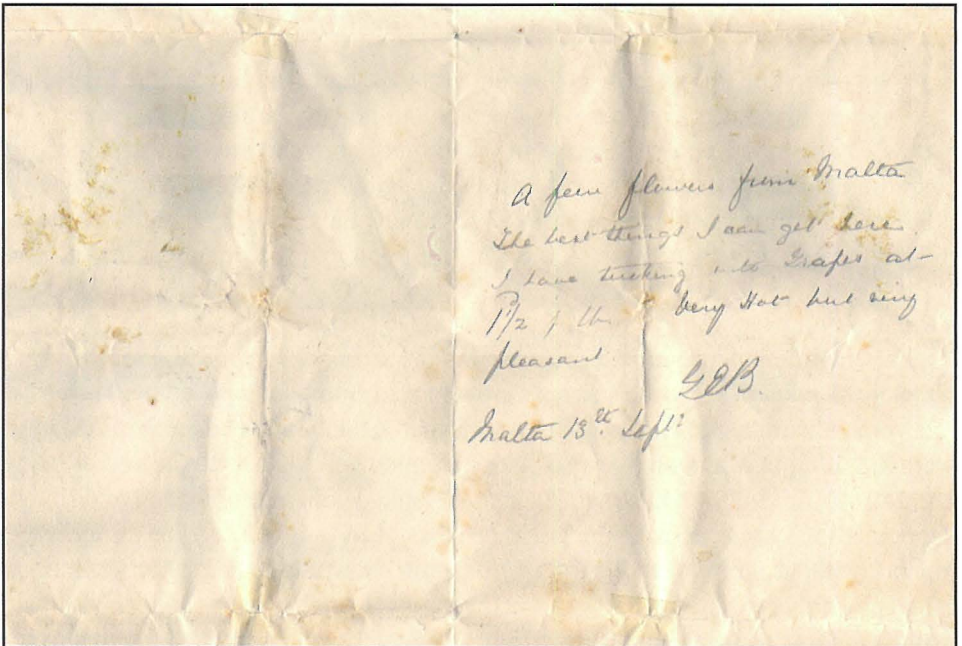 A few flowers from Malta
The best things I can get here.
I have tucking into Grapes at
1½ lb Very Hot but very
pleasant.
GEB.
Malta 13th Sept: